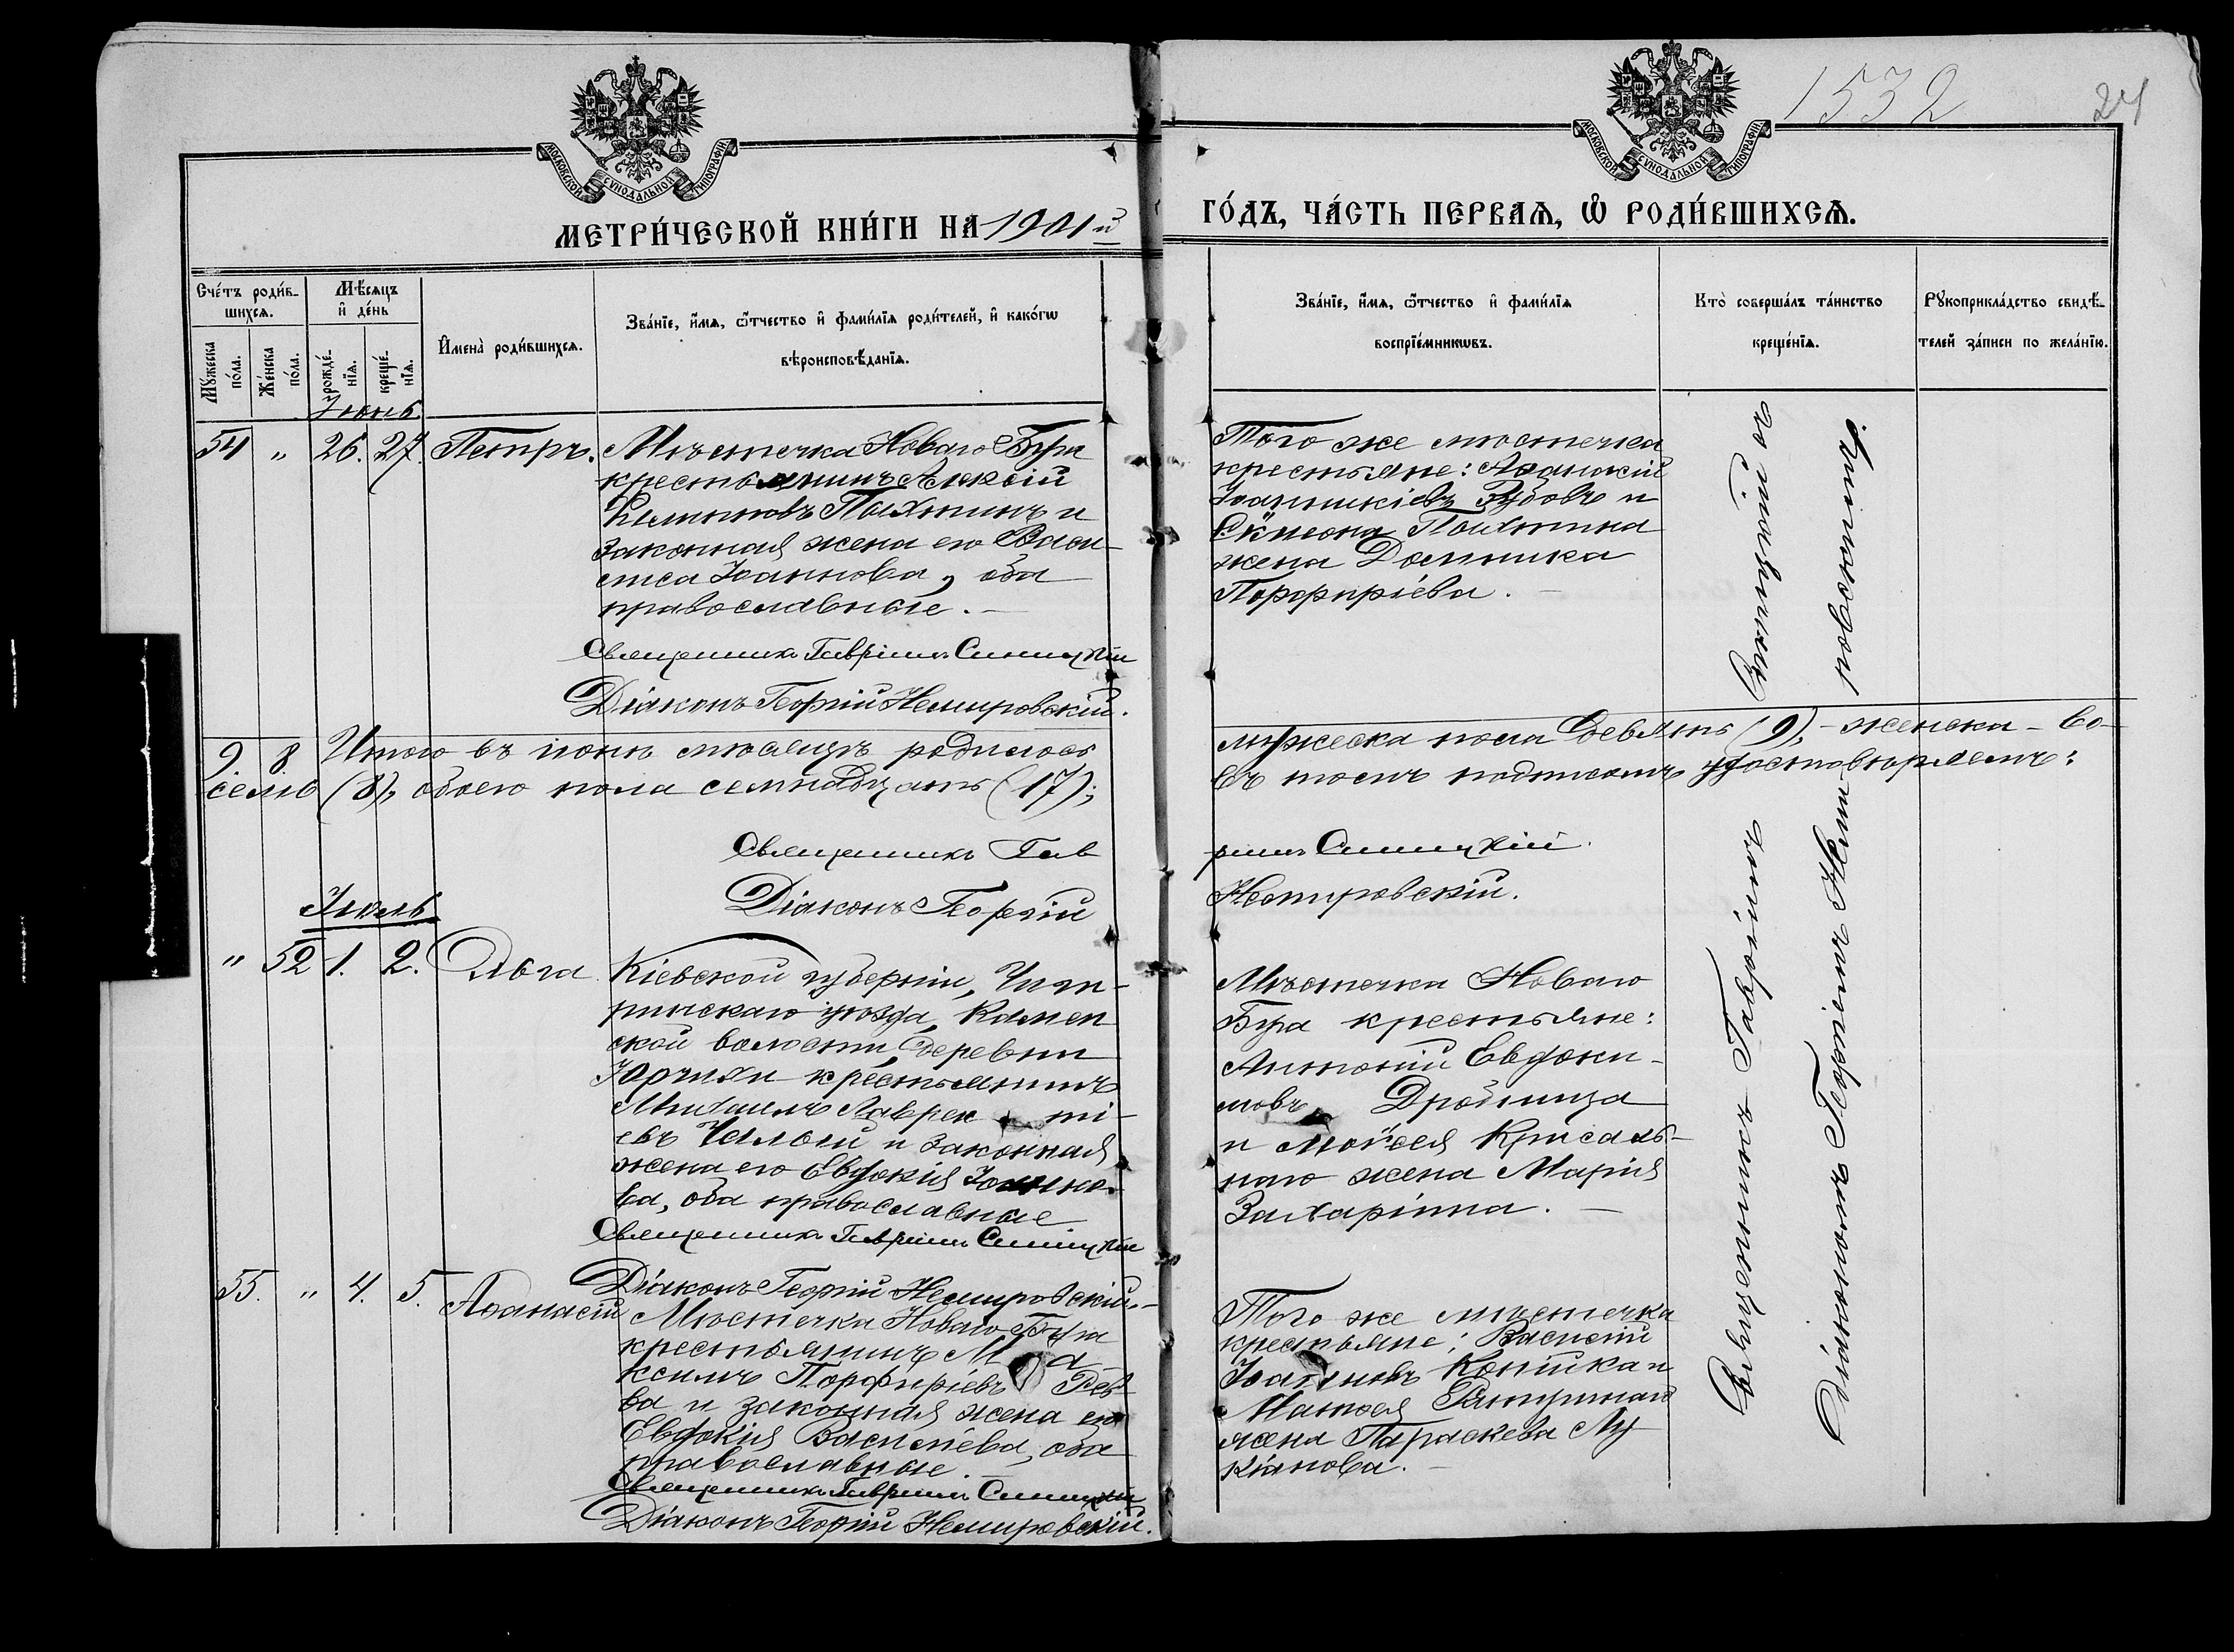 1532
24
МОСКОВСКОЙ СѴНОДАЛЬНОЙ ТИПОГРАФІИ
МОСКОВСКОЙ СѴНОДАЛЬНОЙ ТИПОГРАФІИ
МЕТРИ́ЧЕСКОЙ КНИ́ГИ НА 1901й
ГО́ДЪ, ЧА́СТЬ ПЕРВАЯ, Ѡ҆ РОДИ́ВШИХСЯ.
Сче́тъ роди́в-
шихся.
Мꙋ́жеска по́ла.
Же́нска по́ла.
Мѣ́сяцъ и҆ де́нь
рожде́нїѧ.
креще́нїѧ.
И҆мена̀ роди́вшихся.
Зва́нїе, и҆́мѧ, ѻ҆́тчество и҆ фами́лїѧ роди́телей, и҆ како́гѡ
вѣроисповѣ́данїѧ.
Зва́нїе, и҆́мѧ, ѻ҆́тчество и҆ фами́лїѧ
воспрїе́мникѡвъ.
Кто̀ соверша́лъ та́инство
креще́нїѧ.
Рꙋкоприкла́дство свидѣ́-
телей за́писи по жела́нїю.
Іюнь
54 " 26. 27. Петръ.
Мѣстечка Новаго Буга
крестьянинъ Алексій
Пахтинъ и
законная жена его Васи-
лиса Іоаннова, оба
православные. —
Священникъ Гавріилъ Синицкій
Діаконъ Георгій Немировскій.
Того же мѣстечка
крестьяне:
Зубовъ и
Сѵмеона
жена Домника
Порфиріева. —
9 8 Итого въ іюнѣ мѣсяцѣ родилось
мужеска пола девять (9), - женска - во-
семь (8), обоего пола семнадцать (17);
въ томъ подписомъ удостовѣряемъ:
Священникъ Гав
ріилъ Синицкій.
Діаконъ Георгій
Немировскій.
Іюль
" 52 1. 2. Ольга
Кіевской губерніи, Чиги-
ринскаго уѣзда, Камен
ской волости, деревни
Юрчихи крестьянинъ
Михаилъ Лаврен ті-
евъ Чалый и законная
жена его Евдокія Іоанно-
ва, оба православные
Священникъ Гавріилъ Синицкій
Діаконъ Георгій Немировскій. —
Мѣстечка Новаго
Буга крестьяне:
Антоній Евдоки-
мовъ
и Моѵсея Крисаль-
наго жена Марія
Захаріина. —
55. " 4. 5. Аѳанасій
Мѣстечка Новаго Буга
крестьянинъ М а
ксимъ Порфиріевъ Рев
ва и законная жена его
Евдокія Василіева, оба
православные. —
Священникъ Гавріилъ Синицкій
Діаконъ Георгій Немировскій.
Того же мѣстечка
крестьяне: Василій
Іоанновъ Копійка и
Матѳея
жена Параскева Лу-
кіанова. —
Священникъ Гавріилъ Синицкій со
Діакономъ Георгіемъ Неми-
ровскимъ.